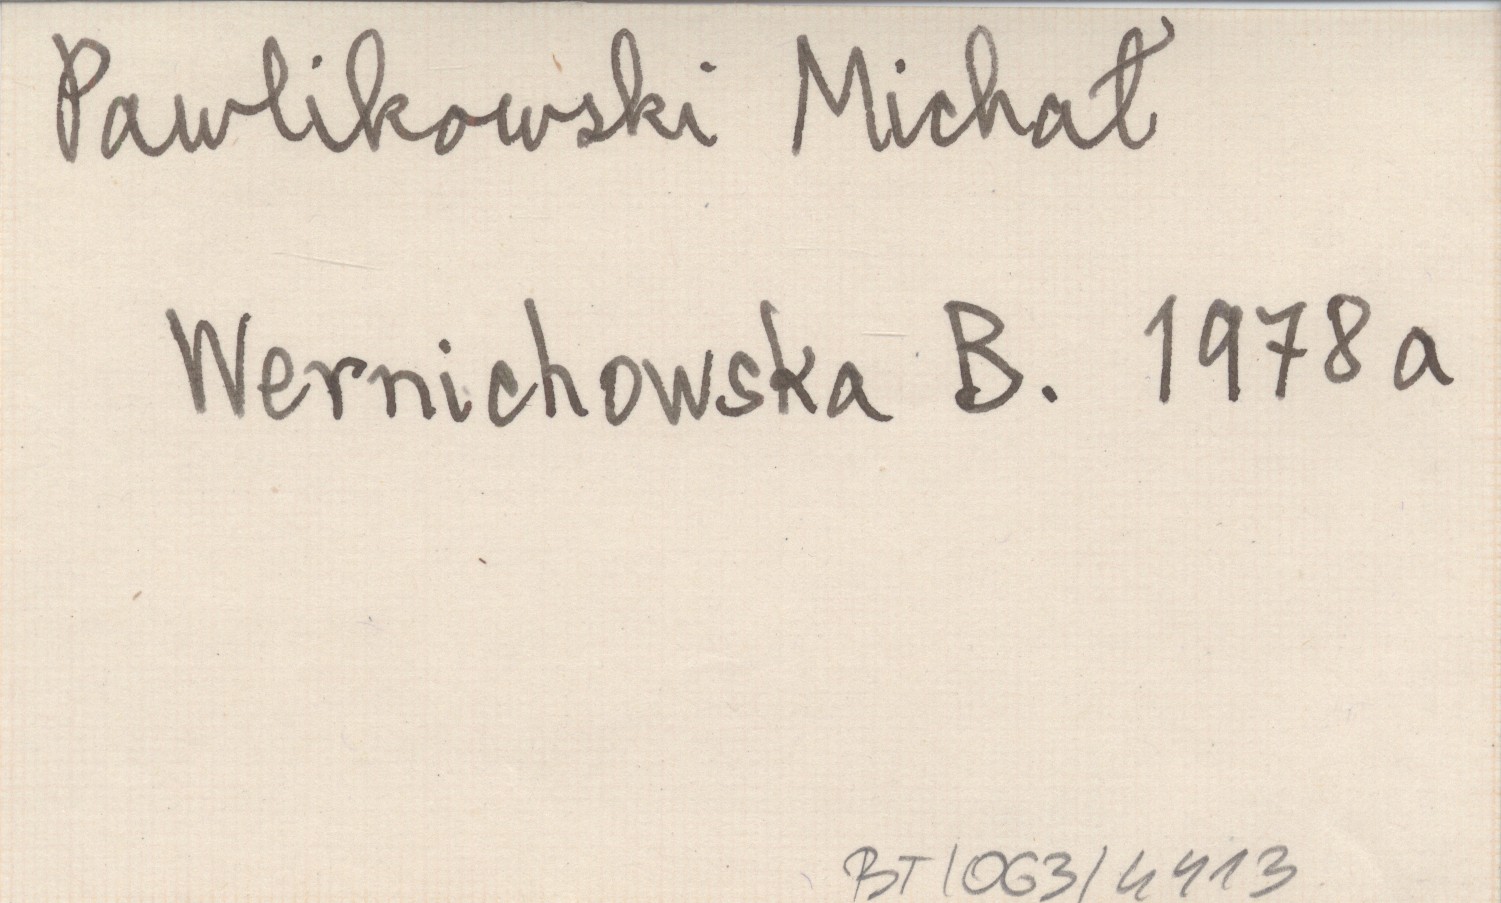 Pawlikowski Michał
Wernichowska B. 1978a
BT/OG3/4413